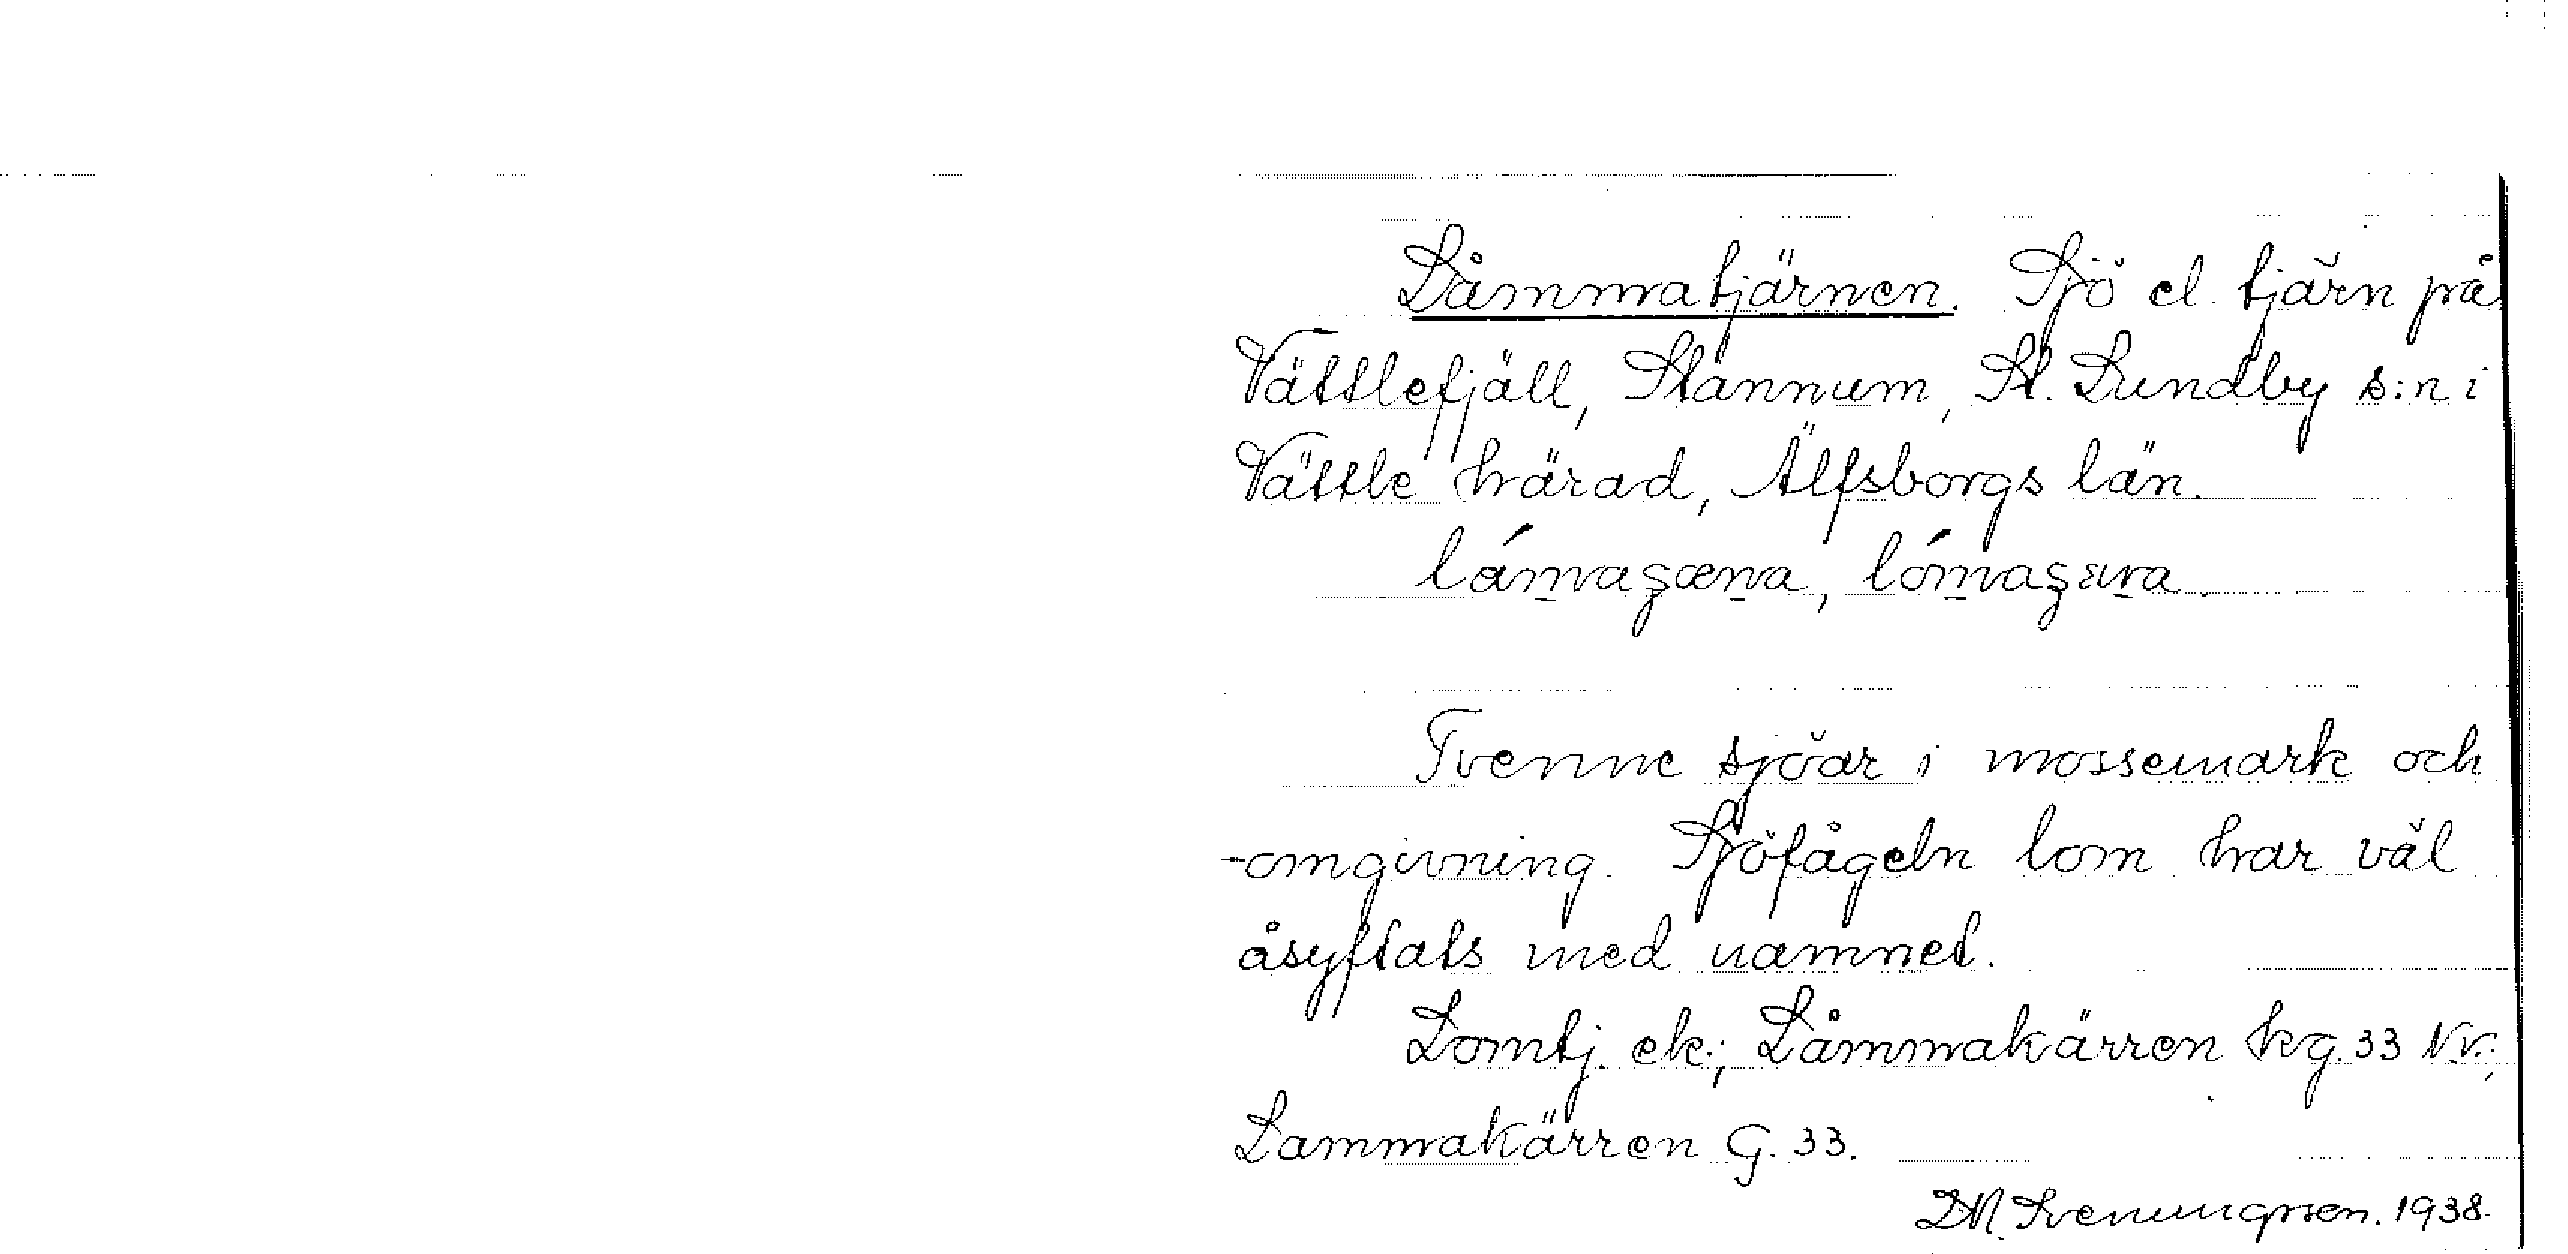 Låmmatjärnen. Sjö el. tjärn på
Vättlefjäll, Stannum, St. Lundby s:n i
Vättle härad, Älfsborgs län.
Tvenne sjöar i mossemark och
-omgivning. Sjöfågeln lom har väl
åsyftats med namnet.
Lomtj. ek.; Låmmakärren kg. 33 Nv.;
Lammakärren G. 33.
D.M. Svenungsson. 1938.